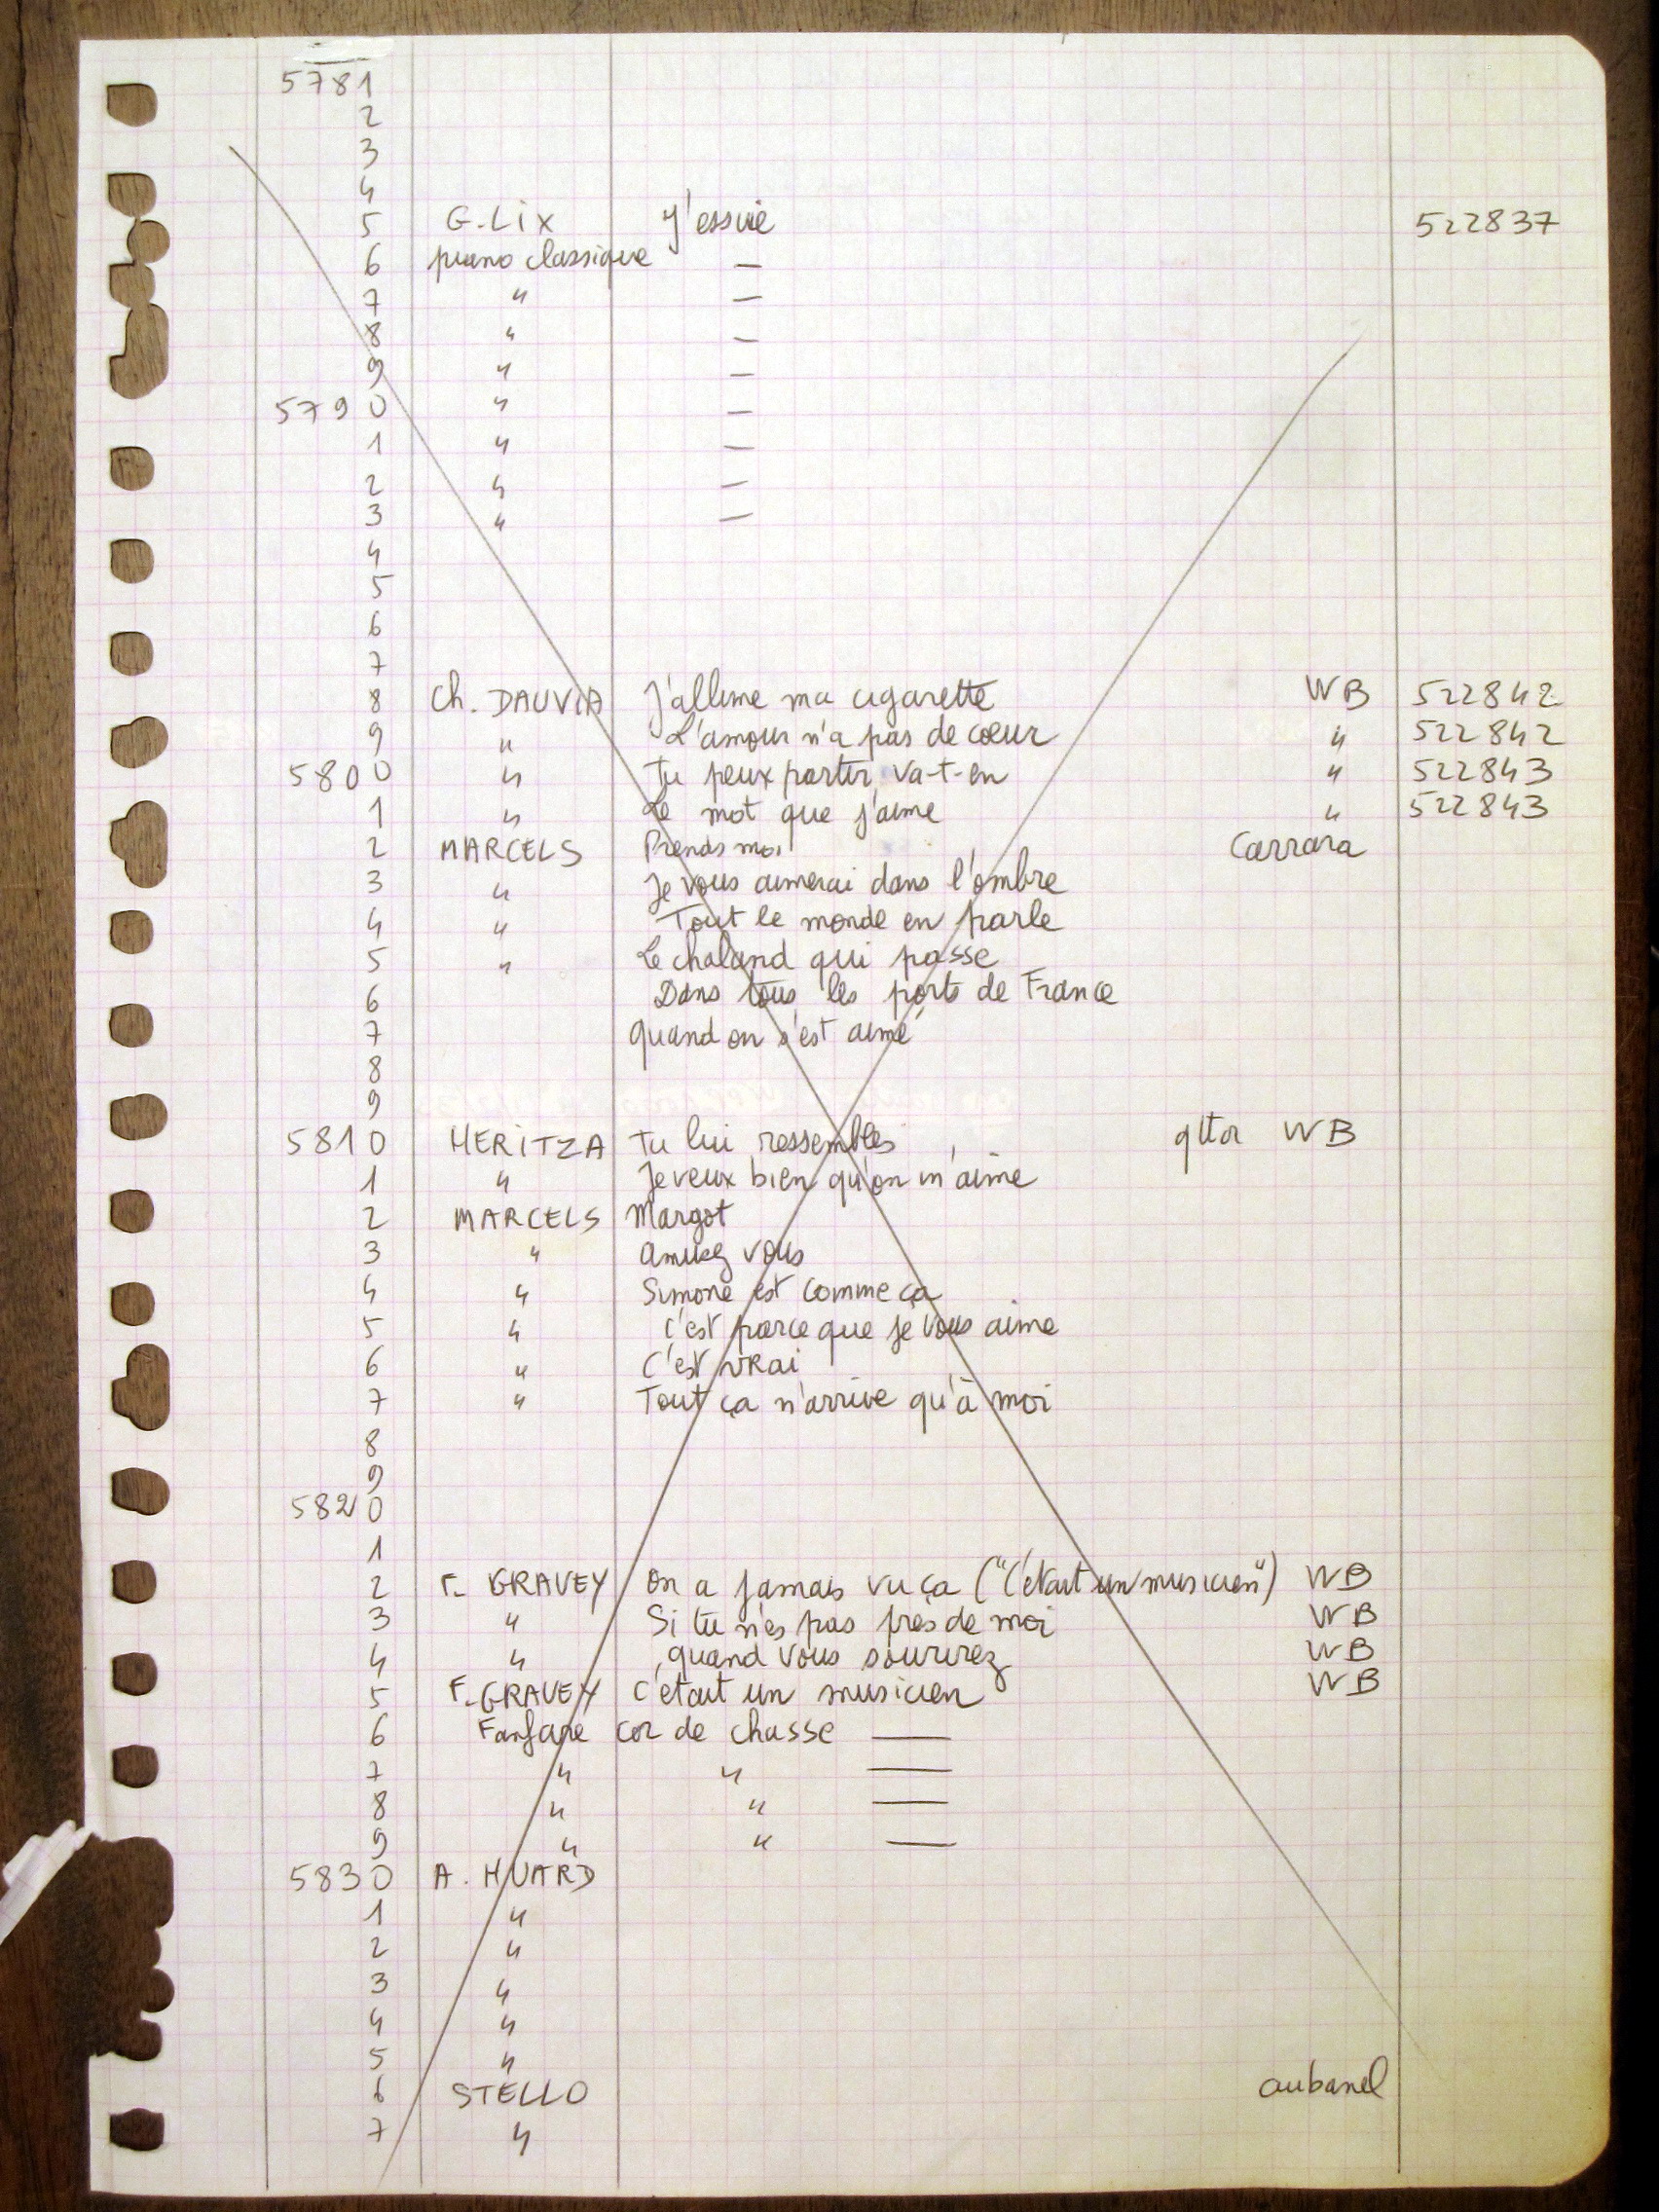 5781
2
3
4
5 G. Lix J'essuie 522837
6 piano classique —
7 " —
8 " —
9 " —
5790 " —
1 " —
2 " —
3 " —
4
5
6
7
8 Ch. DAUVIA J'allume ma cigarette WB 522842
9 " L'amour n'a pas de cœur " 522842
5800 " Tu peux partir va-t-en " 522843
1 " Le mot que j'aime " 522843
2 MARCELS Prends moi Carrara
3 " Je vous aimerai dans l'ombre
4 " Tout le monde en parle
5 " Le chaland qui passe
6 Dans tous les ports de France
7 Quand on s'est aimé
8
9
5810 HERITZA Tu lui ressembles qttor WB
1 " Je veux bien qu'on m'aime
2 MARCELS Margot
3 " Amusez vous
4 " Simone est comme ça
5 " C'est parce que je vous aime
6 " C'est vrai
7 " Tout ça n'arrive qu'à moi
8
9
5820
1
2 F. GRAVEY On a jamais vu ça ("C'était un musicien") WB
3 " Si tu n'es pas près de moi WB
4 " quand vous sourirez WB
5 F. GRAVEY C'était un musicien WB
6 Fanfare cor de chasse —
7 " " —
8 " " —
9 " " —
5830 A. HUARD
1 "
2 "
3 "
4 "
5 "
6 STELLO aubanel
7 "